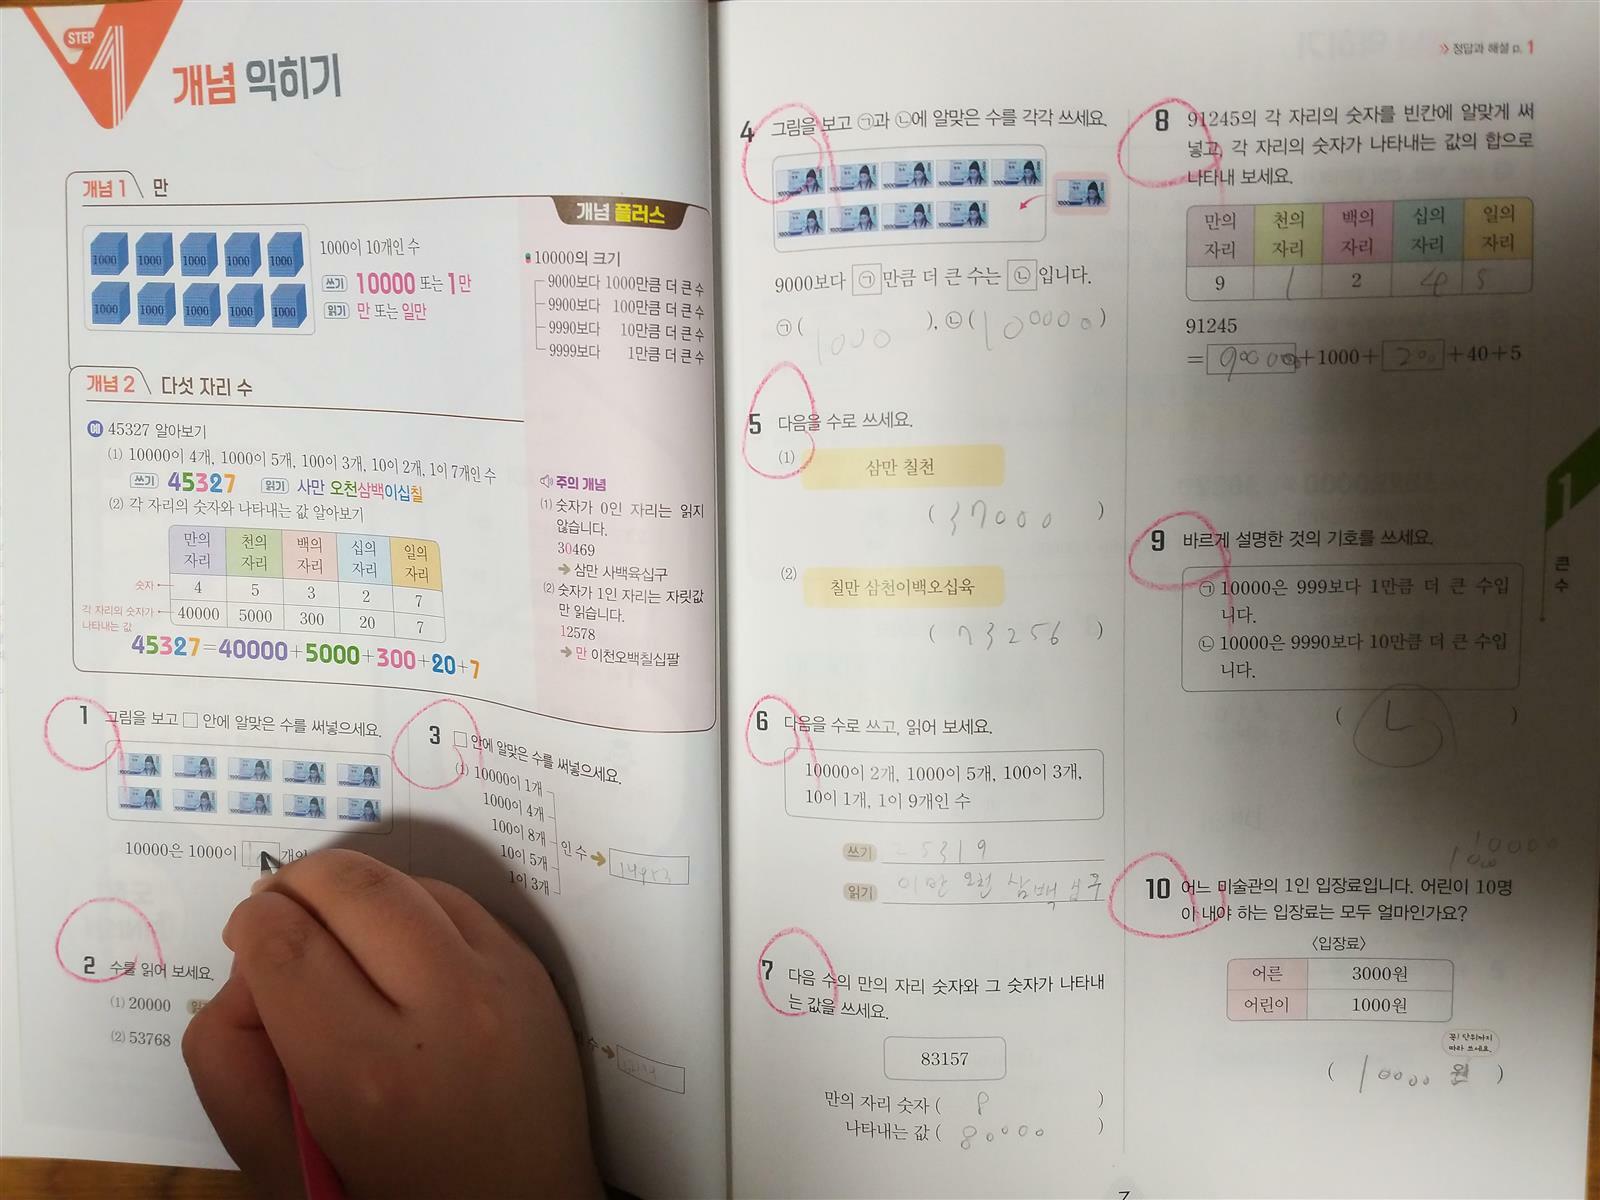 STEP 1
개념 익히기
개념 1 만
1000 1000 1000 1000 1000
1000 1000 1000 1000 1000
1000이 10개인 수
쓰기 10000 또는 1만
읽기 만 또는 일만
개념 플러스
10000의 크기
9000보다 1000만큼 더 큰 수
9900보다 100만큼 더 큰 수
9990보다 10만큼 더 큰 수
9999보다 1만큼 더 큰 수
개념 2 다섯 자리 수
예 45327 알아보기
(1) 10000이 4개, 1000이 5개, 100이 3개, 10이 2개, 1이 7개인 수
쓰기 45327 읽기 사만 오천삼백이십칠
(2) 각 자리의 숫자와 나타내는 값 알아보기
만의 자리 천의 자리 백의 자리 십의 자리 일의 자리
숫자 4 5 3 2 7
각 자리의 숫자가 나타내는 값 40000 5000 300 20 7
45327=40000+5000+300+20+7
주의 개념
(1) 숫자가 0인 자리는 읽지
않습니다.
30469
→ 삼만 사백육십구
(2) 숫자가 1인 자리는 자릿값
만 읽습니다.
12578
→ 만 이천오백칠십팔
1 그림을 보고 □ 안에 알맞은 수를 써넣으세요.
10000은 1000이 개인
2 수를 읽어 보세요.
(1) 20000
(2) 53768
3 □ 안에 알맞은 수를 써넣으세요.
(1) 10000이 1개
1000이 4개
100이 8개
10이 5개
1이 3개
인 수 → 14853
수 →
» 정답과 해설 p. 1
4 그림을 보고 ㉠과 ㉡에 알맞은 수를 각각 쓰세요.
9000보다 ㉠만큼 더 큰 수는 ㉡입니다.
㉠ ( 1000 ), ㉡ ( 10000 )
5 다음을 수로 쓰세요.
(1) 삼만 칠천
( 37000 )
(2) 칠만 삼천이백오십육
( 73256 )
6 다음을 수로 쓰고, 읽어 보세요.
10000이 2개, 1000이 5개, 100이 3개,
10이 1개, 1이 9개인 수
쓰기 25319
읽기 이만 오천 삼백 십구
7 다음 수의 만의 자리 숫자와 그 숫자가 나타내
는 값을 쓰세요.
83157
만의 자리 숫자 ( 8 )
나타내는 값 ( 80000 )
8 91245의 각 자리의 숫자를 빈칸에 알맞게 써
넣고, 각 자리의 숫자가 나타내는 값의 합으로
나타내 보세요.
만의 자리 천의 자리 백의 자리 십의 자리 일의 자리
9 1 2 4 5
91245
= 90000 +1000+ 200 +40+5
9 바르게 설명한 것의 기호를 쓰세요.
㉠ 10000은 999보다 1만큼 더 큰 수입
니다.
㉡ 10000은 9990보다 10만큼 더 큰 수입
니다.
( ㄴ )
10000
1000
10 어느 미술관의 1인 입장료입니다. 어린이 10명
이 내야 하는 입장료는 모두 얼마인가요?
〈입장료〉
어른 3000원
어린이 1000원
꼭! 단위까지
따라 쓰세요.
( 10000 원 )
1
큰 수
7